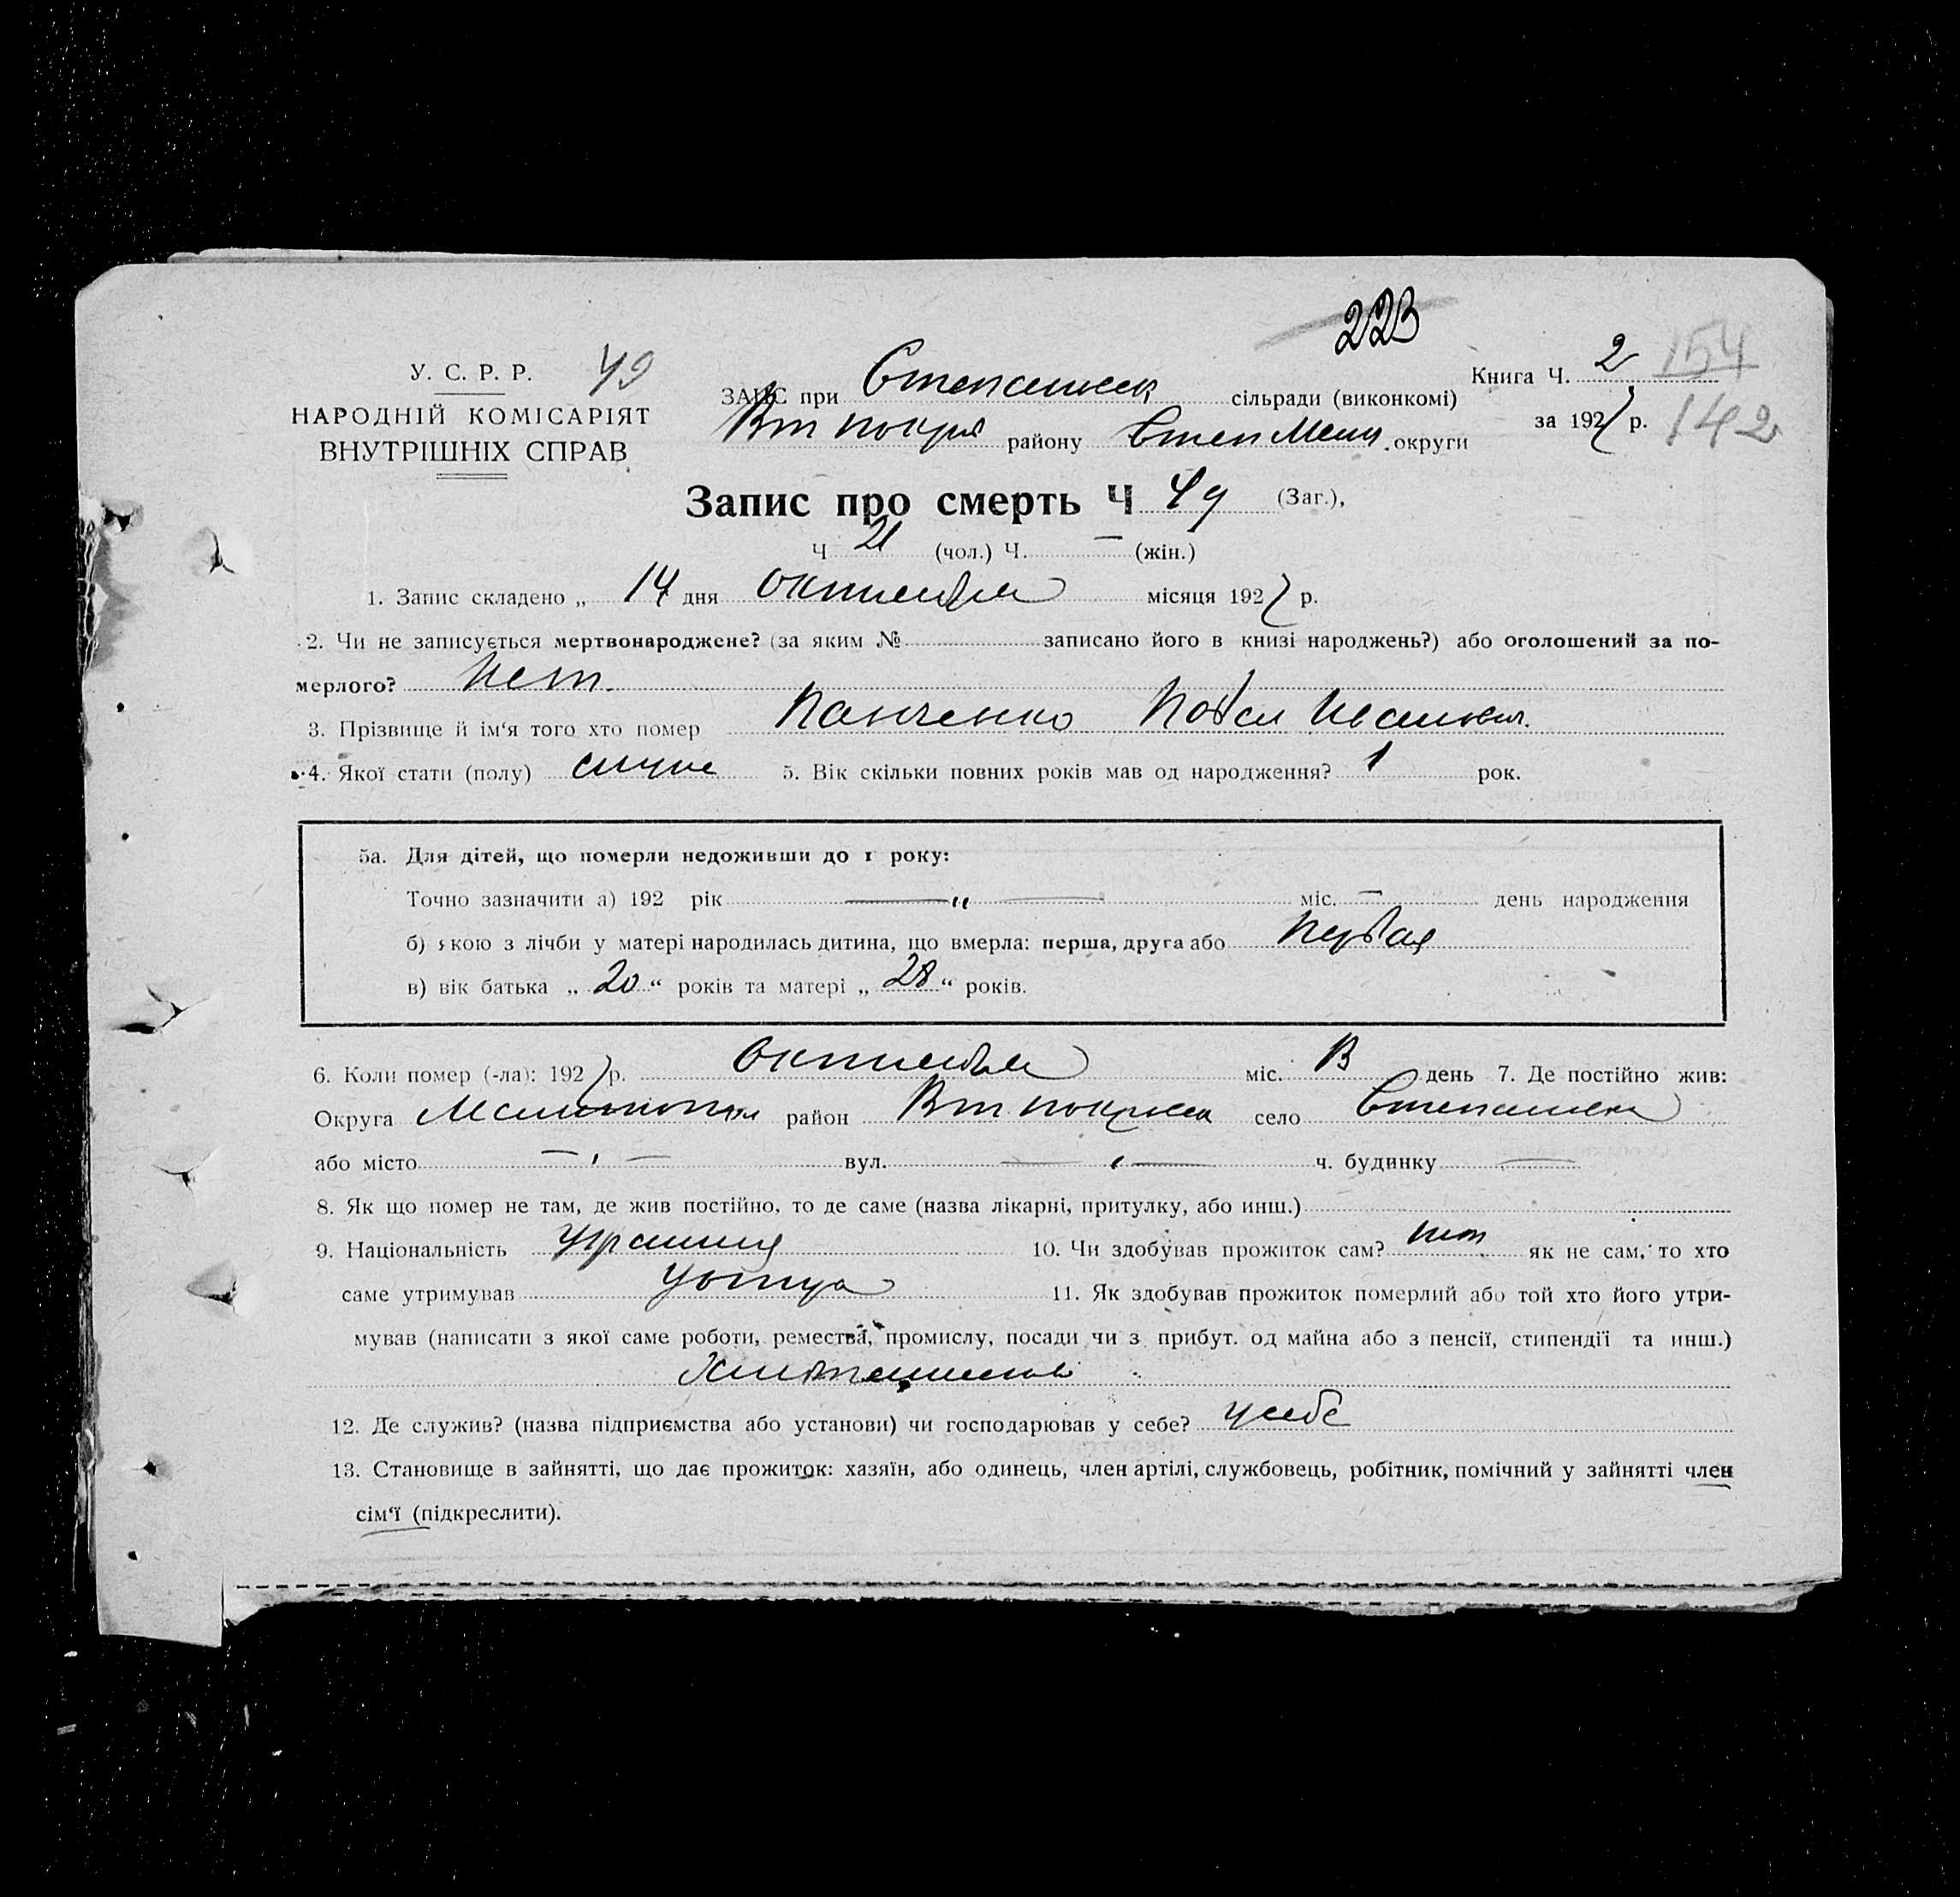 223
У. С. Р. Р. 49
НАРОДНІЙ КОМІСАРІЯТ
ВНУТРІШНІХ СПРАВ
ЗАПС при сільради (виконкомі)
району округи
Книга Ч. 2 154
за 1927 р. 142
Запис про смерть Ч 49 (Заг.),
Ч 21 (чол.) Ч. — (жін.)
1. Запис складено „ 14 дня октября місяця 1927 р.
2. Чи не записується мертвонароджене? (за яким № записано його в книзі народжень?) або оголошений за по-
мерлого? Нет.
3. Прізвище й ім'я того хто помер Панченко Павел
4. Якої стати (полу) 5. Вік скільки повних років мав од народження? 1 рок.
5а. Для дітей, що померли недоживши до 1 року:
Точно зазначити а) 192 рік — „ — міс. — день народження
б) якою з лічби у матері народилась дитина, що вмерла: перша, друга або первая
в) вік батька „ 20 “ років та матері „ 28 “ років.
6. Коли помер (-ла): 1927 р. октября міс. день 7. Де постійно жив:
Округа район село
або місто — „ — вул. — „ — ч. будинку —
8. Як що помер не там, де жив постійно, то де саме (назва лікарні, притулку, або инш.)
9. Національність 10. Чи здобував прожиток сам? нет як не сам, то хто
саме утримував у отца 11. Як здобував прожиток померлий або той хто його утри-
мував (написати з якої саме роботи, ремества, промислу, посади чи з прибут. од майна або з пенсії, стипендії та инш.)
12. Де служив? (назва підприємства або установи) чи господарював у себе? у себе
13. Становище в зайнятті, що дає прожиток: хазяїн, або одинець, член артілі, службовець, робітник, помічний у зайнятті член
сім'ї (підкреслити).